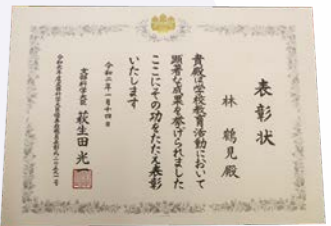 表彰状
林 鶴見 殿
貴殿は学校教育活動において
顕著な成果を挙げられました
ここにその功をたたえ表彰
いたします
令和二年一月十四日
文部科学大臣 萩生田光一